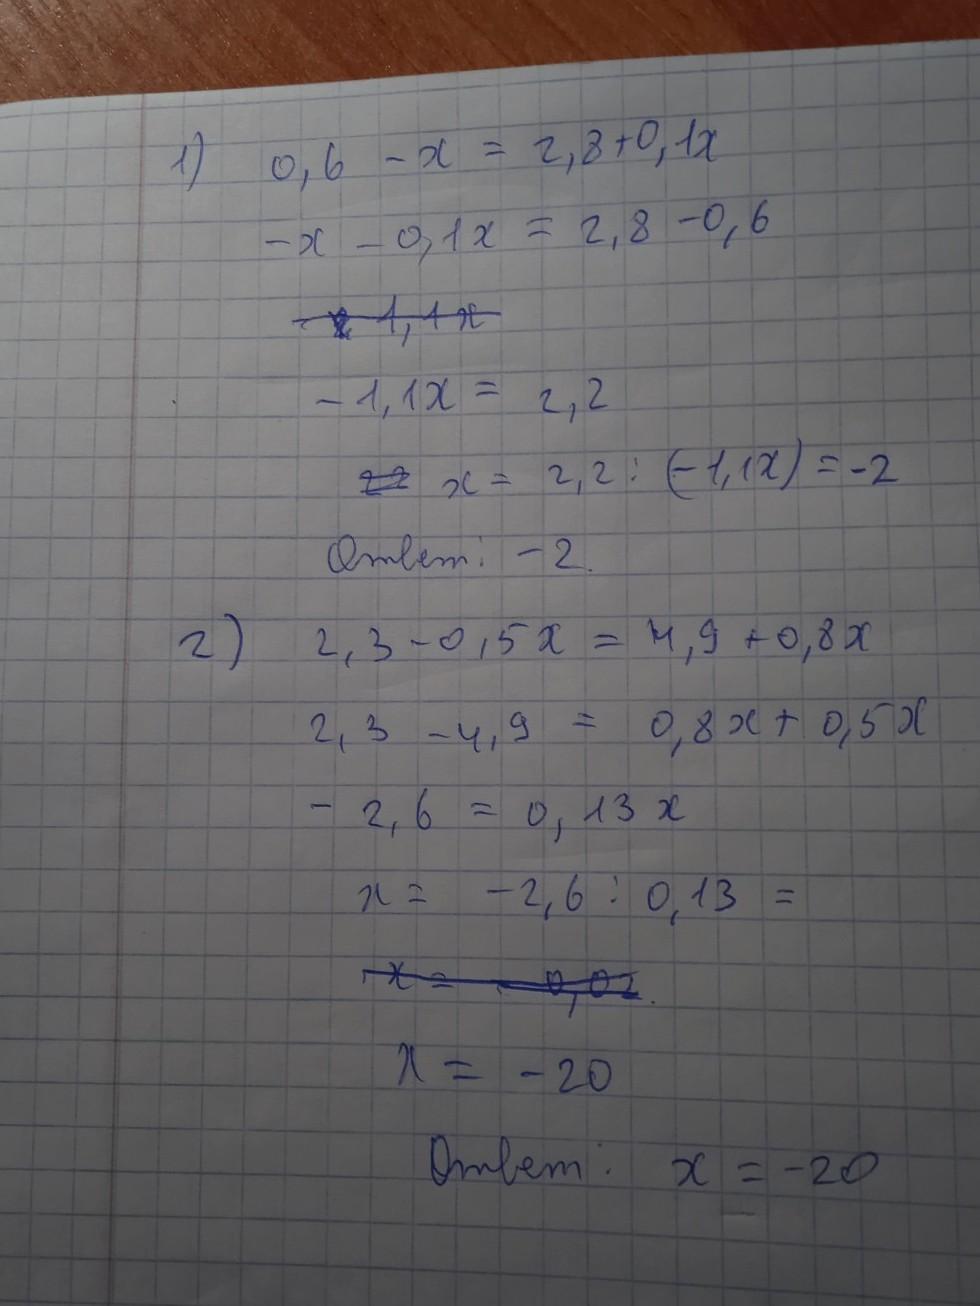 1) 0,6 - x = 2,8+0,1x
-x - 0,1x = 2,8 - 0,6
- 1,1x
-1,1x = 2,2
x = 2,2 : (-1,1x) = -2
Ответ: -2.
2) 2,3 - 0,5x = 4,9 + 0,8x
2,3 - 4,9 = 0,8x + 0,5x
- 2,6 = 0,13x
x = -2,6 : 0,13 =
x = - 0,02
x = -20
Ответ: x = -20